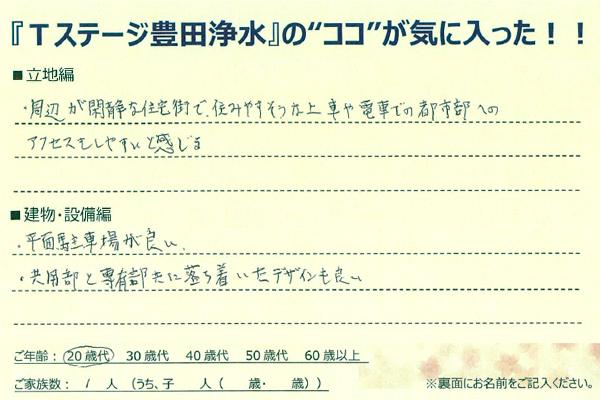 『Ｔステージ豊田浄水』の“ココ”が気に入った！！
■立地編
・周辺が閑静な住宅街で、住みやすそうな上 車や電車での都市部への
アクセスもしやすいと感じる
■建物・設備編
・平面駐車場が良い、
・共用部と専有部共に落ち着いたデザインも良い
ご年齢：20歳代 30歳代 40歳代 50歳代 60歳以上
ご家族数： 1 人（うち、子 人（ 歳・ 歳））
※裏面にお名前をご記入ください。